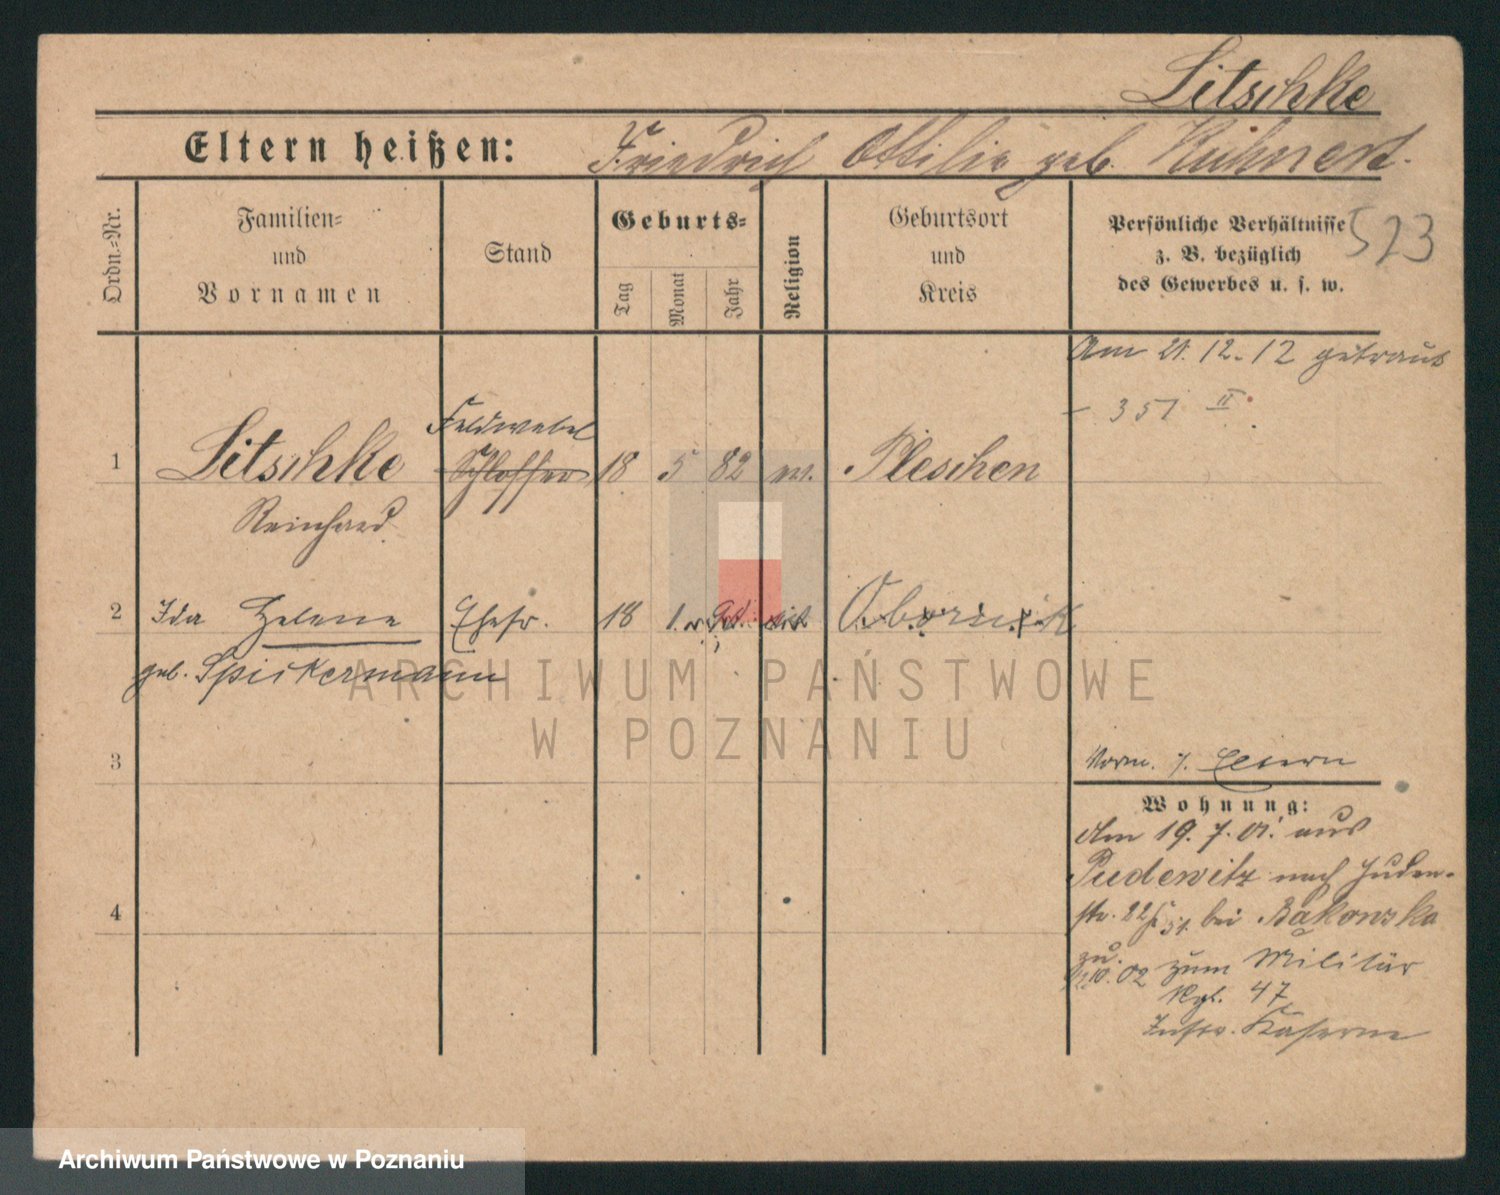 Litschke
Eltern heißen: Friedrich Ottilie geb. Kuhnert.
Ordn.=Nr.
Familien=
und
Vornamen
Stand
Geburts=
Tag
Monat
Jahr
Religion
Geburtsort
und
Kreis
Persönliche Verhältnisse
z. B. bezüglich
des Gewerbes u. s. w.
523
Am 21. 12. 12 getraut
- 351 II.
Feldwebel
1 Litschke Schlosser 18 5 82 Pleschen
Reinhard
2 Ida Helene Ehefr. 18 1. Obornik
geb. Spickermann
ARCHIWUM PAŃSTWOWE
W POZNANIU
3
Vorm. f. Eltern
Wohnung:
Am 19. 7. 01. aus
Pudewitz nach Juden-
4
str. 22 bei Bakowska
zu.
10. 02 zum Militär
Rgt. 47
Inftr. Kaserne
Archiwum Państwowe w Poznaniu